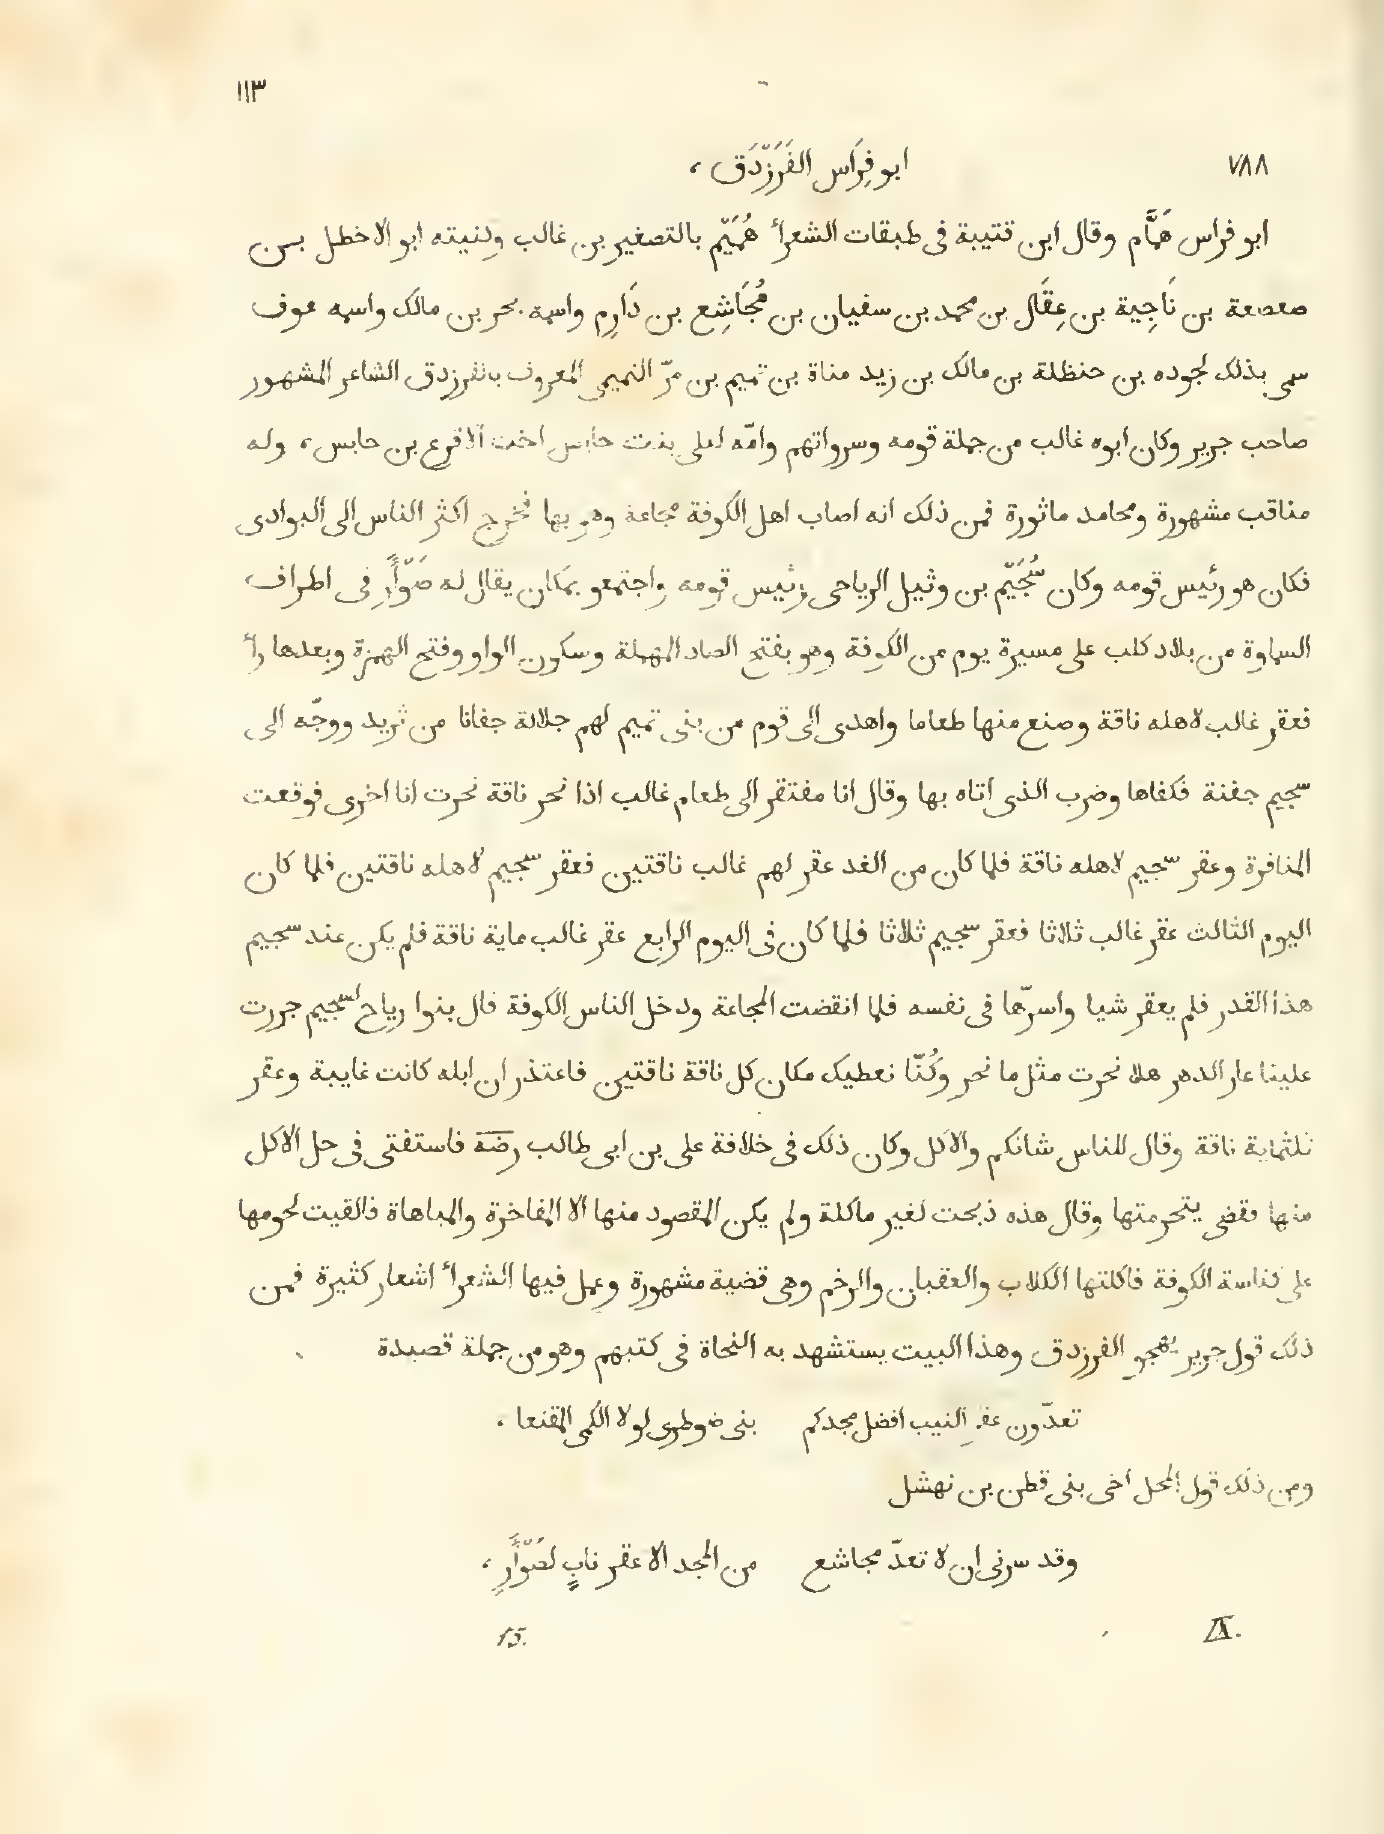 ١١٣
٧٨٨
ابو فِرَاس الفَرَزْدَق ،
ابو فراس هَمَّام وقال ابن قتيبة فى طبقات الشعرأ هُمَيّم بالتصغير بن غالب وكنيته ابو الاخطل بن
صعصعة بن نَاجِية بن عِقَال بن محمد بن سفيان بن مُجَاشِع بن دَارِم واسمه بحر بن مالك واسمه عوف
سمى بذلك لجوده بن حنظلة بن مالك بن زيد مناة بن تميم بن مرّ التميمى المعروف بالفرزدق الشاعر المشهور
صاحب جرير وكان ابوه غالب من جملة قومه وسرواتهم وامّه ليلى بنت حابس اخت الاقرع بن حابس ، وله
مناقب مشهورة ومحامد ماثورة فمن ذلك انه اصاب اهل الكوفة مجاعة وهو بها فخرج اكثر الناس الى البوادى
فكان هو رئيس قومه وكان سُجَيّم بن وثيل الرياحى رئيس قومه واجتمعو بمكان يقال له صَوْأَر فى اطراف
السماوة من بلاد كلب على مسيرة يوم من الكوفة وهو بفتح الصاد المهملة وسكون الواو وفتح الهمزة وبعدها رأ
فعقر غالب لاهله ناقة وصنع منها طعاما واهدى الى قوم من بنى تميم لهم جلالة جفانا من ثريد ووجّه الى
سجيم جفنة فكفاها وضرب الذى اتاه بها وقال انا مفتقر الى طعام غالب اذا نحر ناقة نحرت انا اخرى فوقعت
المنافرة وعقر سجيم لاهله ناقة فلما كان من الغد عقر لهم غالب ناقتين فعقر سجيم لاهله ناقتين فلما كان
اليوم الثالث عقر غالب ثلاثا فعقر سجيم ثلاثا فلما كان فى اليوم الرابع عقر غالب ماية ناقة فلم يكن عند سجيم
هذا القدر فلم يعقر شيا واسرّها فى نفسه فلما انقضت المجاعة ودخل الناس الكوفة قال بنوا رياح لسجيم جررت
علينا عار الدهر هلا نحرت مثل ما نحر وكُنّا نعطيك مكان كل ناقة ناقتين فاعتذر ان ابله كانت غايبة وعقر
ثلثماية ناقة وقال للناس شانكم والاكل وكان ذلك فى خلافة على بن ابى طالب رضَه فاستفتى فى حل الاكل
منها فقضى بتحرمتها وقال هذه ذبحت لغير ماكلة ولم يكن المقصود منها الا المفاخرة والمباهاة فالقيت لحومها
على كناسة الكوفة فاكلتها الكلاب والعقبان والرخم وهى قضية مشهورة وعمل فيها الشعرأ اشعار كثيرة فمن
ذلك قول جرير يهجو الفرزدق وهذا البيت يستشهد به النحاة فى كتبهم وهو من جملة قصيدة
تعدّون عقرِ النيب افضل مجدكم بنى ضوطرى لولا الكمى المقنعا ،
ومن ذلك قول المحل اخى بنى قطن بن نهشل
وقد سرنى ان لا تعدّ مجاشع من المجد الا عقر نابٍ لصَوْأَرِ ،
IX.
15.